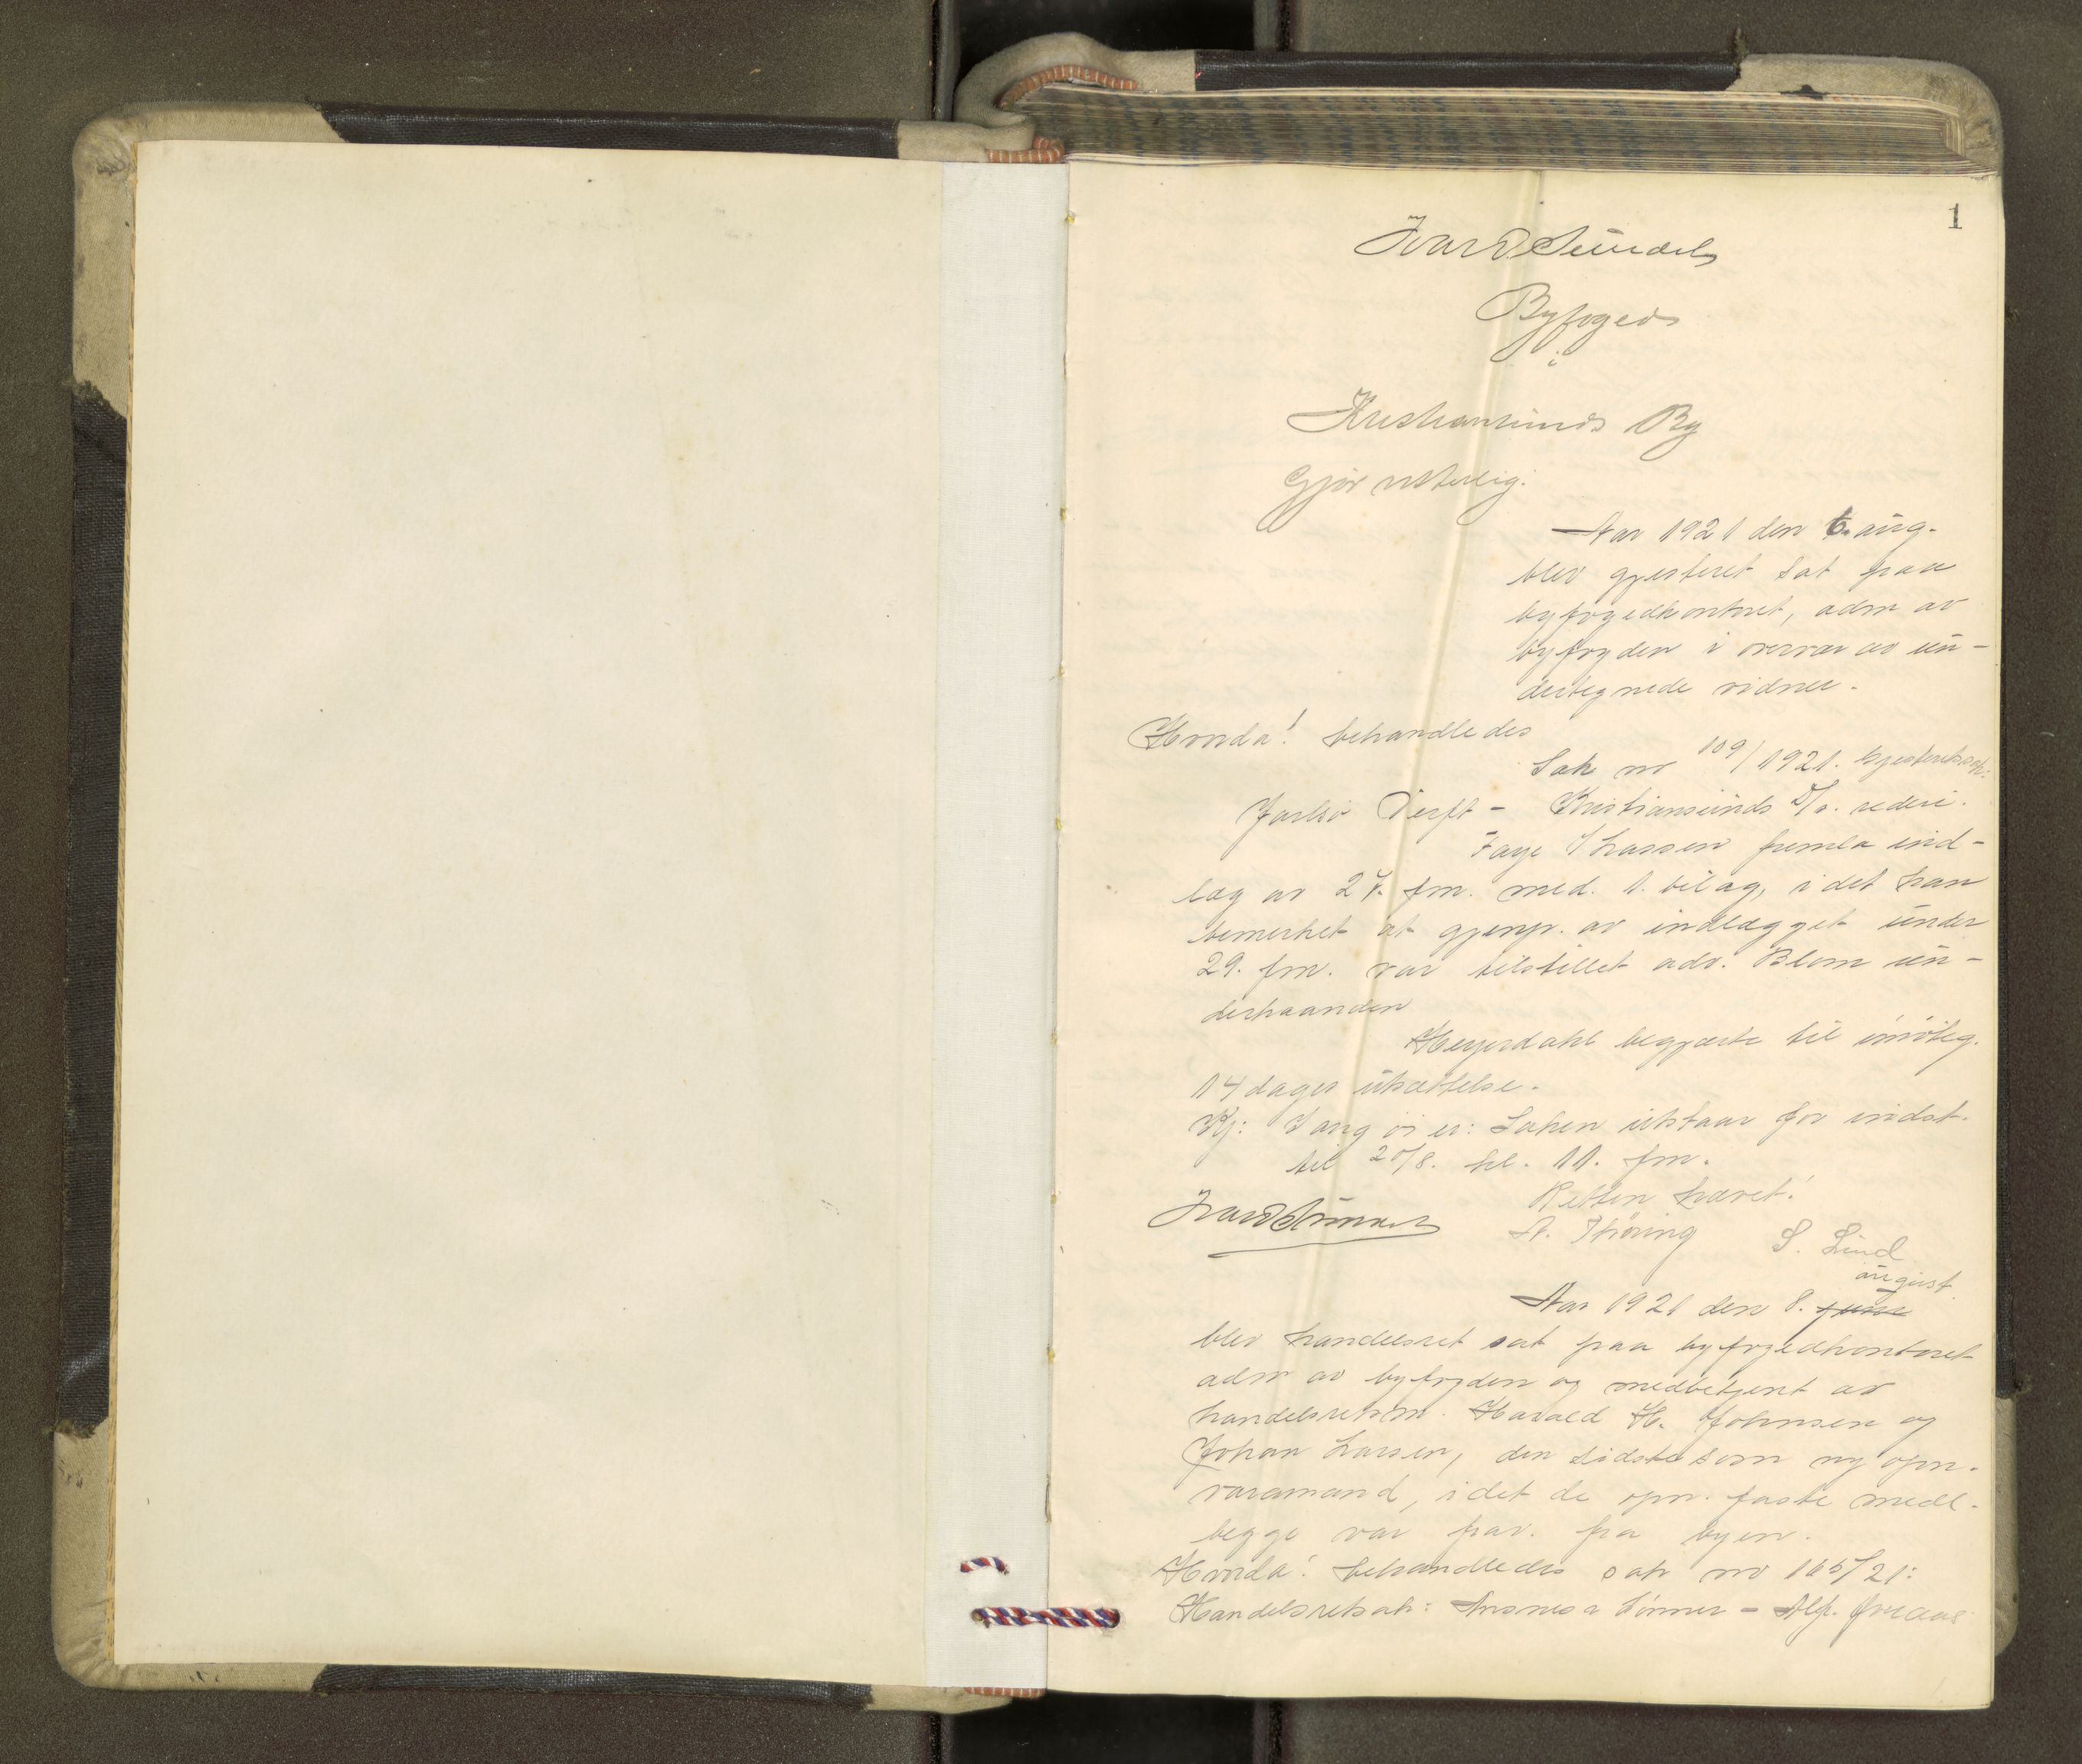 1
Ivar D.
Byfoged
i
Kristiansunds By
Gjør vitterlig:
Aar 1921 den 6. aug.
blev gjesteret sat paa
byfogedkontoret, adm av
byfogden i overvær av un-
dertegnede vidner.
Hvorda! behandledes
Sak nr 109/1921. Gjesteretssak:
Jarlsø Verft - Kristiansunds D/s. rederi.
Faye Thassen fremla ind-
læg av 27. fm. med 1. bilag, i det han
bemerket at gjenp. av indlægget under
29. fm. var tilstillet adv. Blom un-
derhaanden
Heyerdahl begjærte til imøteg.
14 dages utsættelse.
Kj: Saken utstaar for indst.
til 20/8. kl. 11. fm.
Retten hævet!
A. Thoring S. Lind
august
Aar 1921 den 8. juni
blev handelsret sat paa byfogedkontoret
adm av byfogden og medbetjent av
handelsretsm. Harald H. Johnsen og
Johan Larsen, den sidste som ny opn.
varamand, i det de opn. faste medl.
begge var frav. fra byen.
Hvorda! behandledes sak nr 165/21:
Handelsretsak: - Alf.